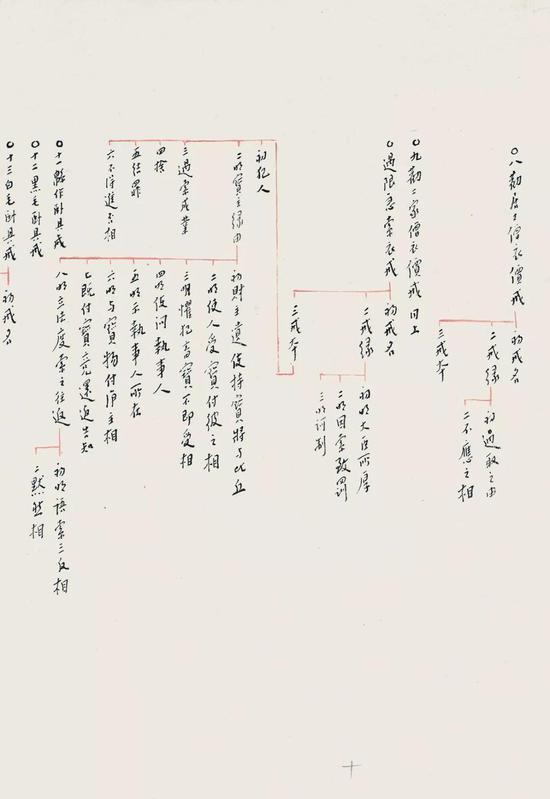 〇八勸居士僧衣價戒
初戒名
二戒緣
初過取之由
二不應之相
三戒本
〇九勸二家僧衣價戒 同上
〇過限忽索衣戒
初戒名
二戒緣
初明大臣所厚
二明因索致罰
三明訶制
三戒本
初犯人
二明寶主緣由
三過索成業
四捨
五結罪
六不得進否相
初財主遣使持寶將与比丘
二明使人受寶付彼之相
三明懼犯畜寶不即受相
四明使問執事人
五明示執事人所在
六明与寶物付淨主相
七既付寶竟還返告知
八明立法度索之往返
初明語索三反相
二默然相
〇十一縣作卧具戒
〇十二黑毛卧具戒
〇十三白毛卧具戒
初戒名
十